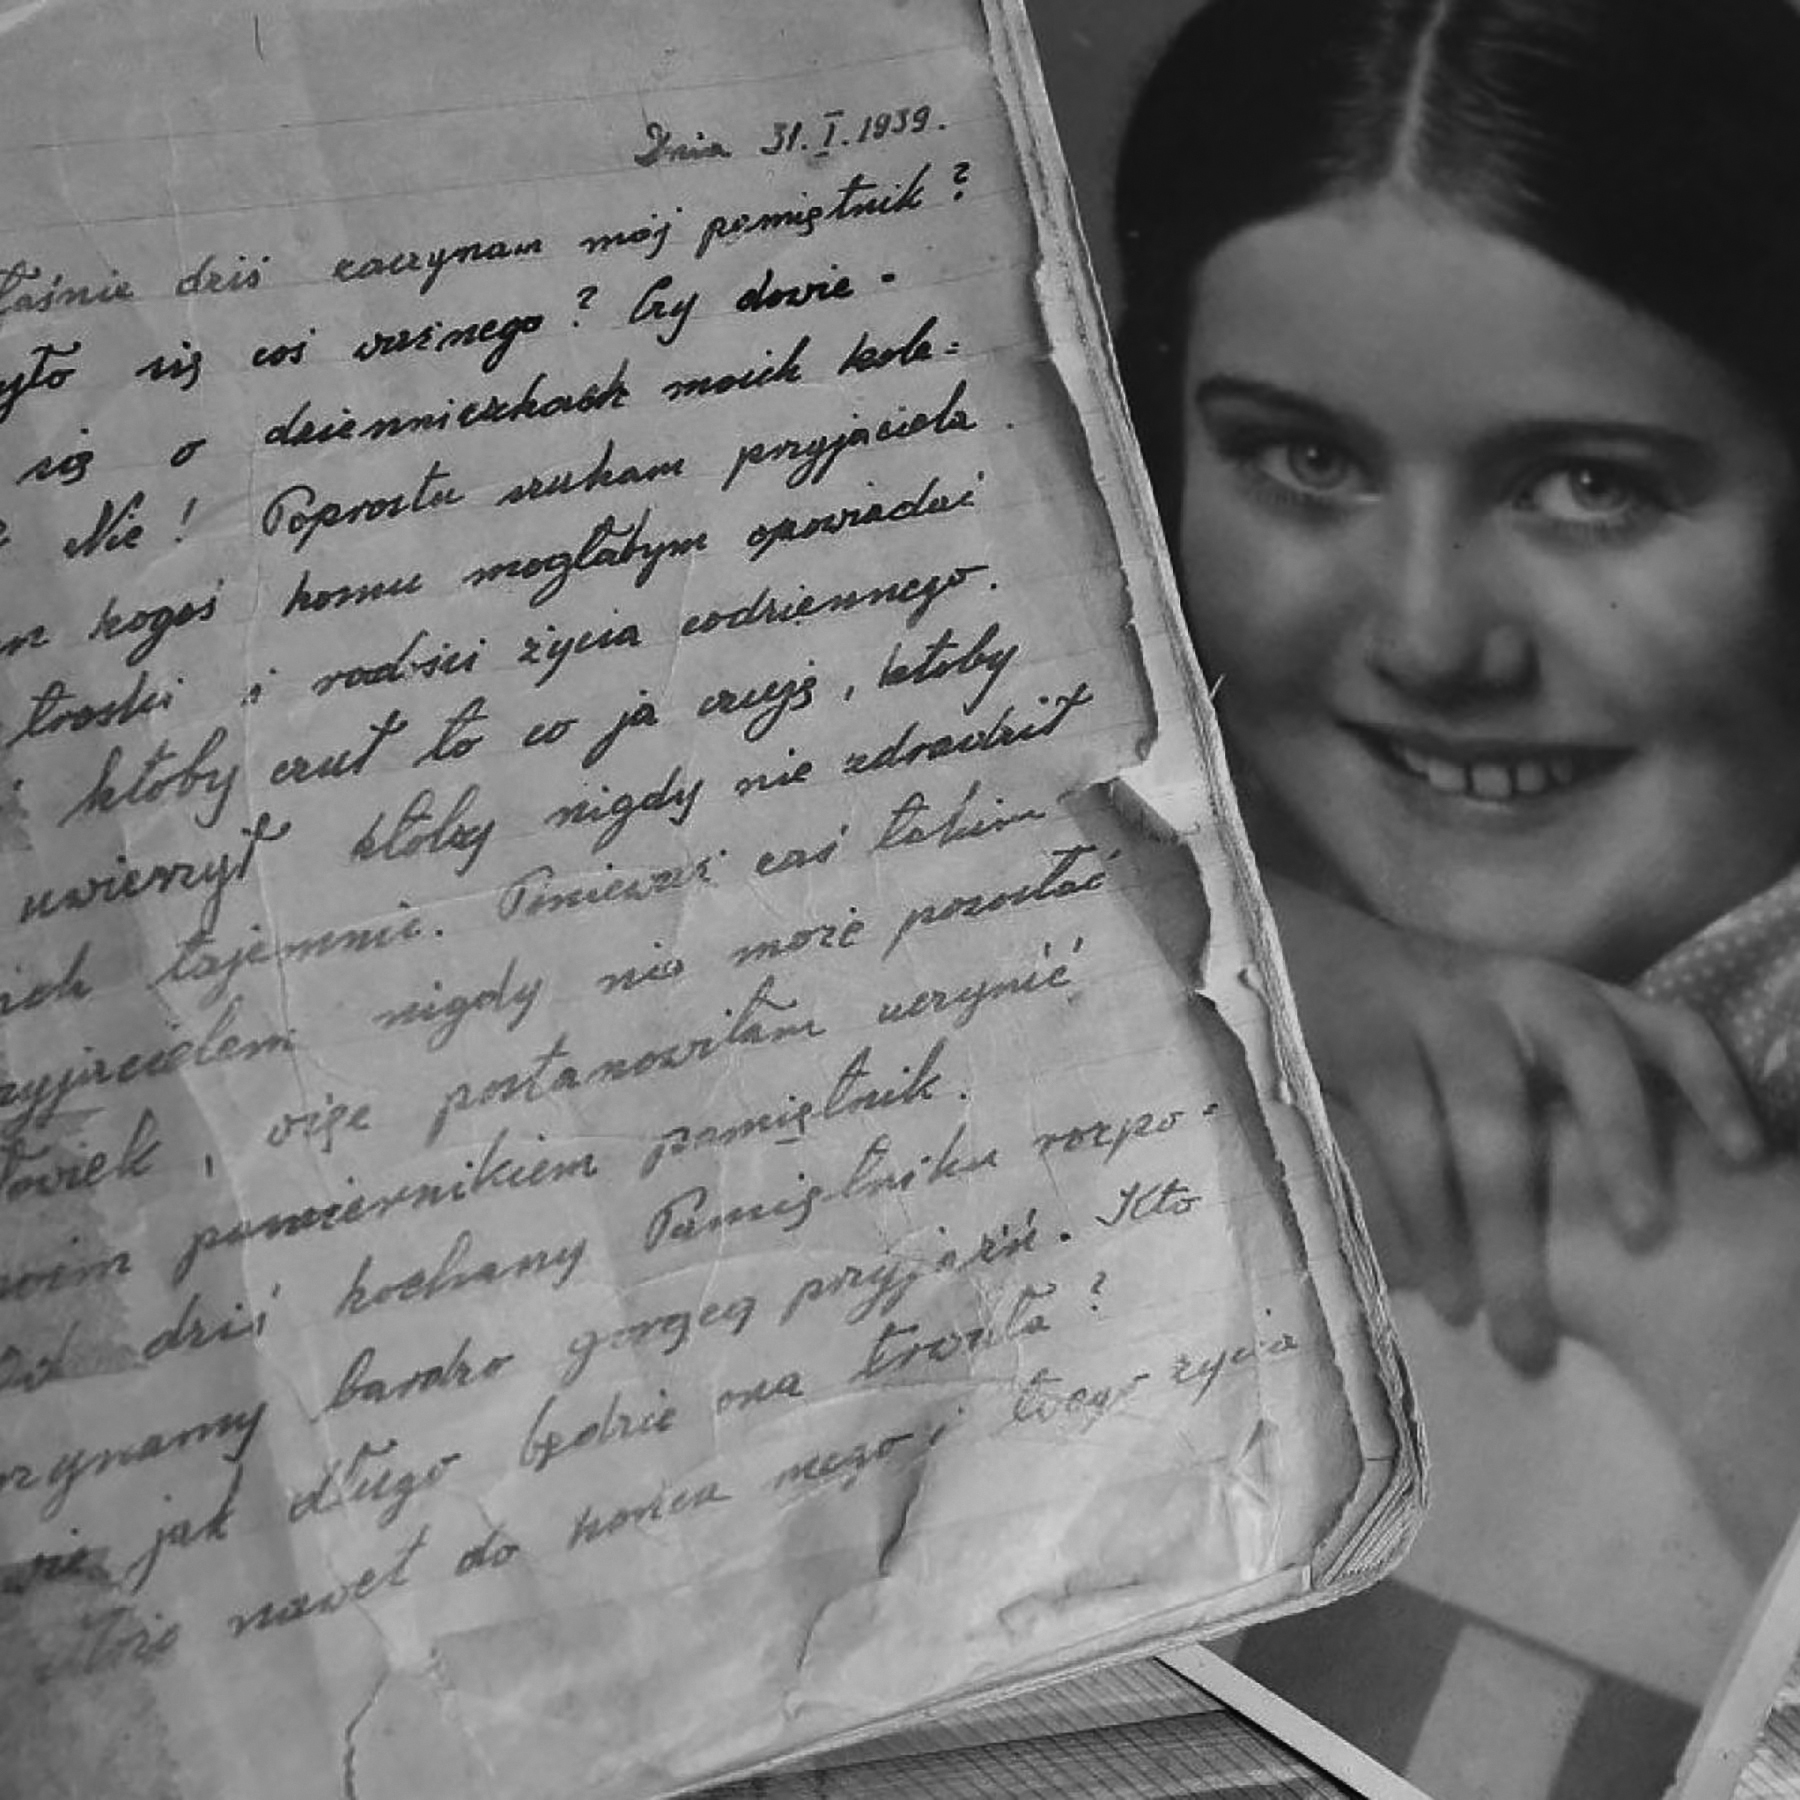 Dnia 31.I.1939.
dziś zaczynam mój pamiętnik?
się coś ważnego? Czy dowie-
się o dzienniczkach moich kole=
Nie! Poprostu szukam przyjaciela.
kogoś komu mogłabym opowiadać
troski i radości życia codziennego.
ktoby czuł to co ja czuję, ktoby
uwierzył ktoby nigdy nie zdradził
tajemnic. Ponieważ zaś takim
nigdy nie może pozostać
, więc postanowiłam uczynić
powiernikiem pamiętnik.
dziś kochany Pamiętniku rozpo-
bardzo gorącą przyjaźń. Kto
jak długo będzie ona trwała?
nawet do końca mego i twego życia